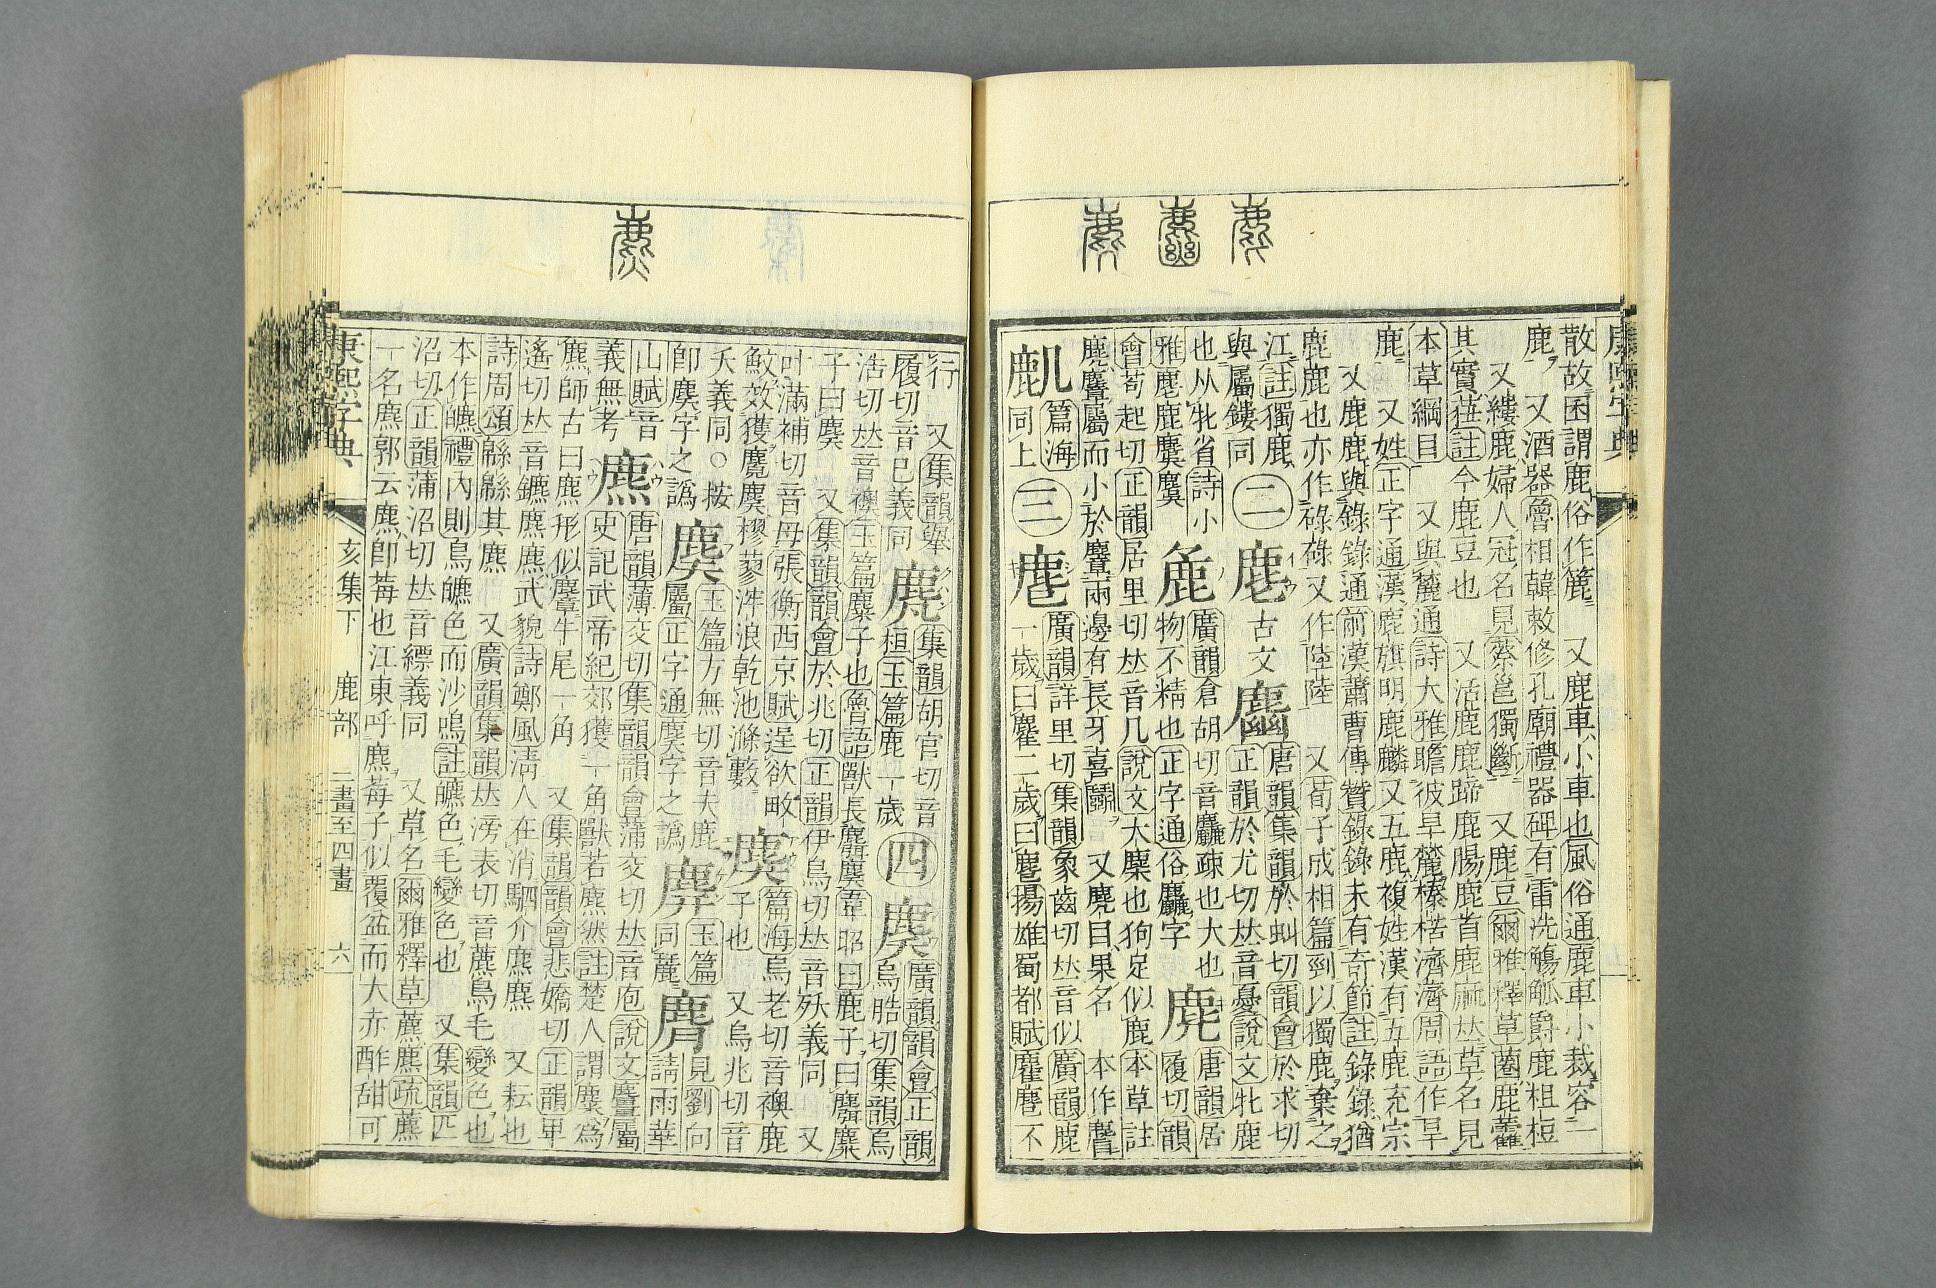 散故因謂鹿俗作簏 又鹿車小車也風俗通鹿車小裁容一
鹿 又酒器魯相韓敕修孔廟禮器碑有雷洗觴觚爵鹿柤梪
又縷鹿婦人冠名見蔡邕獨斷 又鹿豆爾雅釋草蔨鹿藿
其實莥註今鹿豆也 又活鹿鹿蹄鹿腸鹿首鹿麻𠀤草名見
本草綱目 又與麓通詩大雅瞻彼旱麓榛楛濟濟周語作旱
鹿 又姓正字通漢鹿旗明鹿麟又五鹿複姓漢有五鹿充宗
又鹿鹿與錄錄通前漢蕭曹傳贊錄錄未有奇節註錄錄猶
鹿鹿也亦作祿祿又作陸陸 又荀子成相篇剄以獨鹿棄之
江註獨鹿與屬鏤同
二
麀
古文麔
唐韻集韻於虯切韻會於求切
正韻於尤切𠀤音憂說文牝鹿
也从牝省詩小雅麀鹿麌麌
麁
廣韻倉胡切音麤疎也大也
物不精也正字通俗麤字
麂
唐韻居履切韻
會苟起切正韻居里切𠀤音几說文大麋也狗足似鹿本草註
麂麞屬而小於麞兩邊有長牙喜鬭 又麂目果名 本作麐
䴥
篇海
同上
三
麆
廣韻詳里切集韻象齒切𠀤音似廣韻鹿
一歲曰麞二歲曰麆揚雄蜀都賦麞麆不
行 又集韻舉
履切音己義同
麙
集韻胡官切音
桓玉篇鹿一歲
四
麌
廣韻韻會正韻
烏皓切集韻烏
浩切𠀤音襖玉篇麋子也魯語獸長麑麌韋昭曰鹿子曰麛麋
子曰麌 又集韻韻會於兆切正韻伊鳥切𠀤音殀義同 又
叶滿補切音母張衡西京賦逞欲畋
鮫效獲麑麌樛蓼浶浪乾池滌藪
麇
篇海烏老切音襖鹿
子也 又烏兆切音
夭義同○按
卽麌字之譌
麌
玉篇方無切音夫鹿
屬正字通麌字之譌
䴠
玉篇
同麓
見劉向
請雨華
山賦音
義無考
麃
唐韻薄交切集韻韻會蒲交切𠀤音庖說文麞屬
史記武帝紀郊獲一角獸若麃然註楚人謂麋爲
麃師古曰麃形似麞牛尾一角 又集韻韻會悲嬌切正韻𤰞
遙切𠀤音鑣麃麃武貌詩鄭風淸人在消駟介麃麃 又耘也
詩周頌緜緜其麃 又廣韻集韻𠀤滂表切音藨鳥毛變色也
本作皫禮內則鳥皫色而沙鳴註皫色毛變色也 又集韻匹
沼切正韻蒲沼切𠀤音縹義同 又草名爾雅釋草藨麃疏藨
一名麃郭云麃卽莓也江東呼麃莓子似覆盆而大赤酢甜可
康熙字典
亥集下 鹿部
二畫至四畫
六